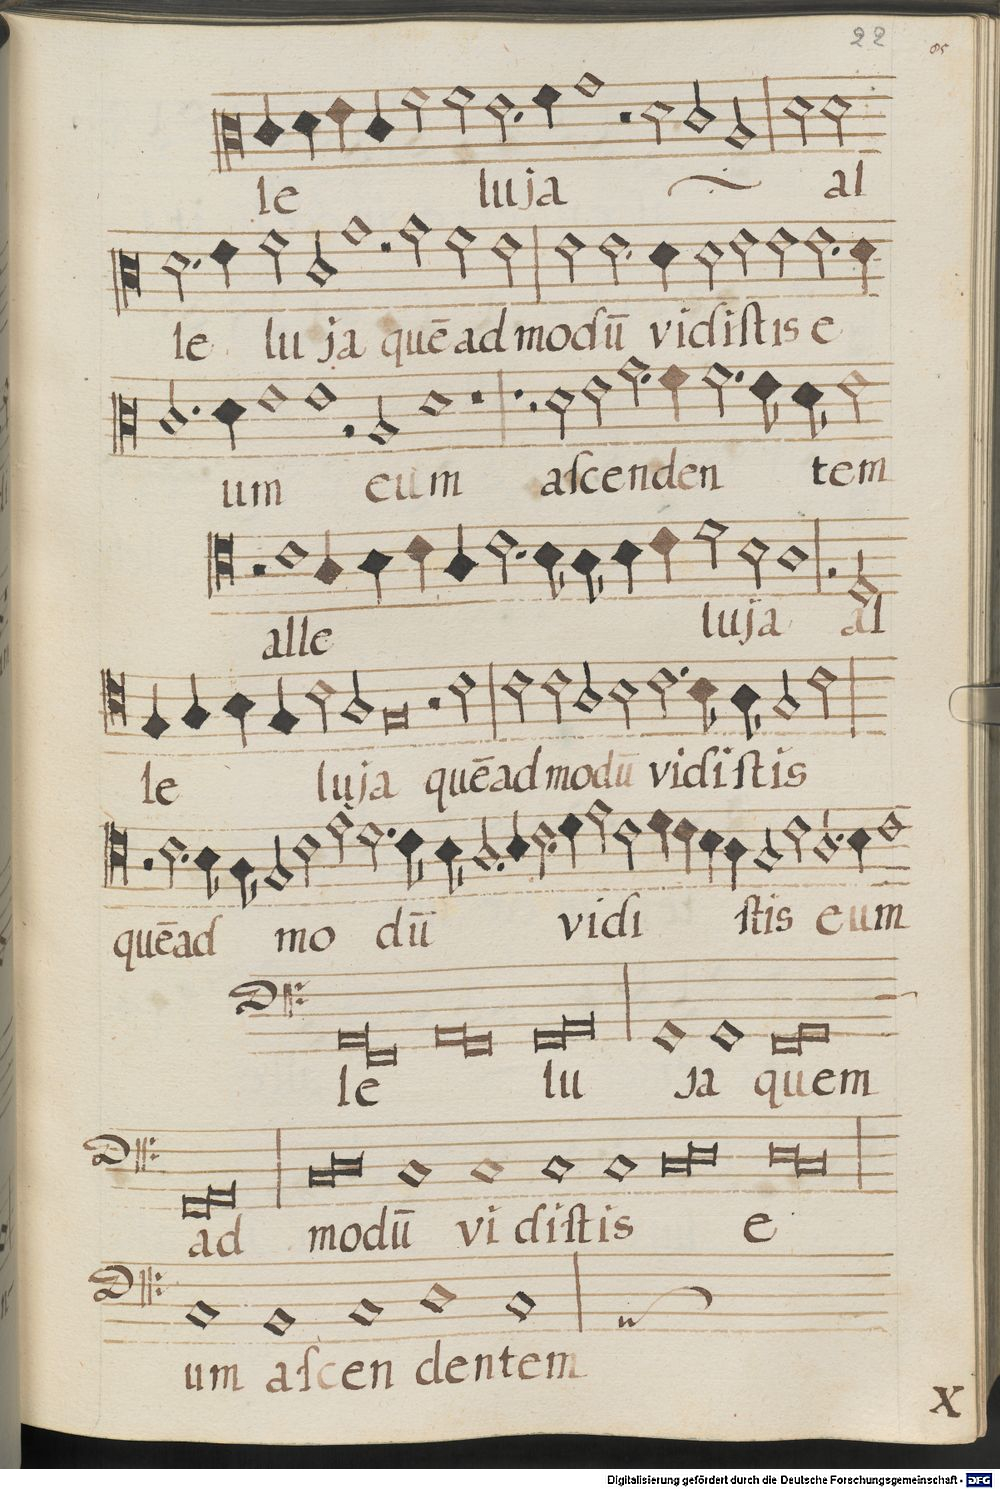 22
le luja al
le lu ja quē ad modū vidistis e
um eum ascenden tem
alle luja al
le luja quē ad modū vidistis
quēad mo dū vidi stis eum
le lu ja quem
ad modū vi distis e
um ascen dentem
X
Digitalisierung gefördert durch die Deutsche Forschungsgemeinschaft - DFG